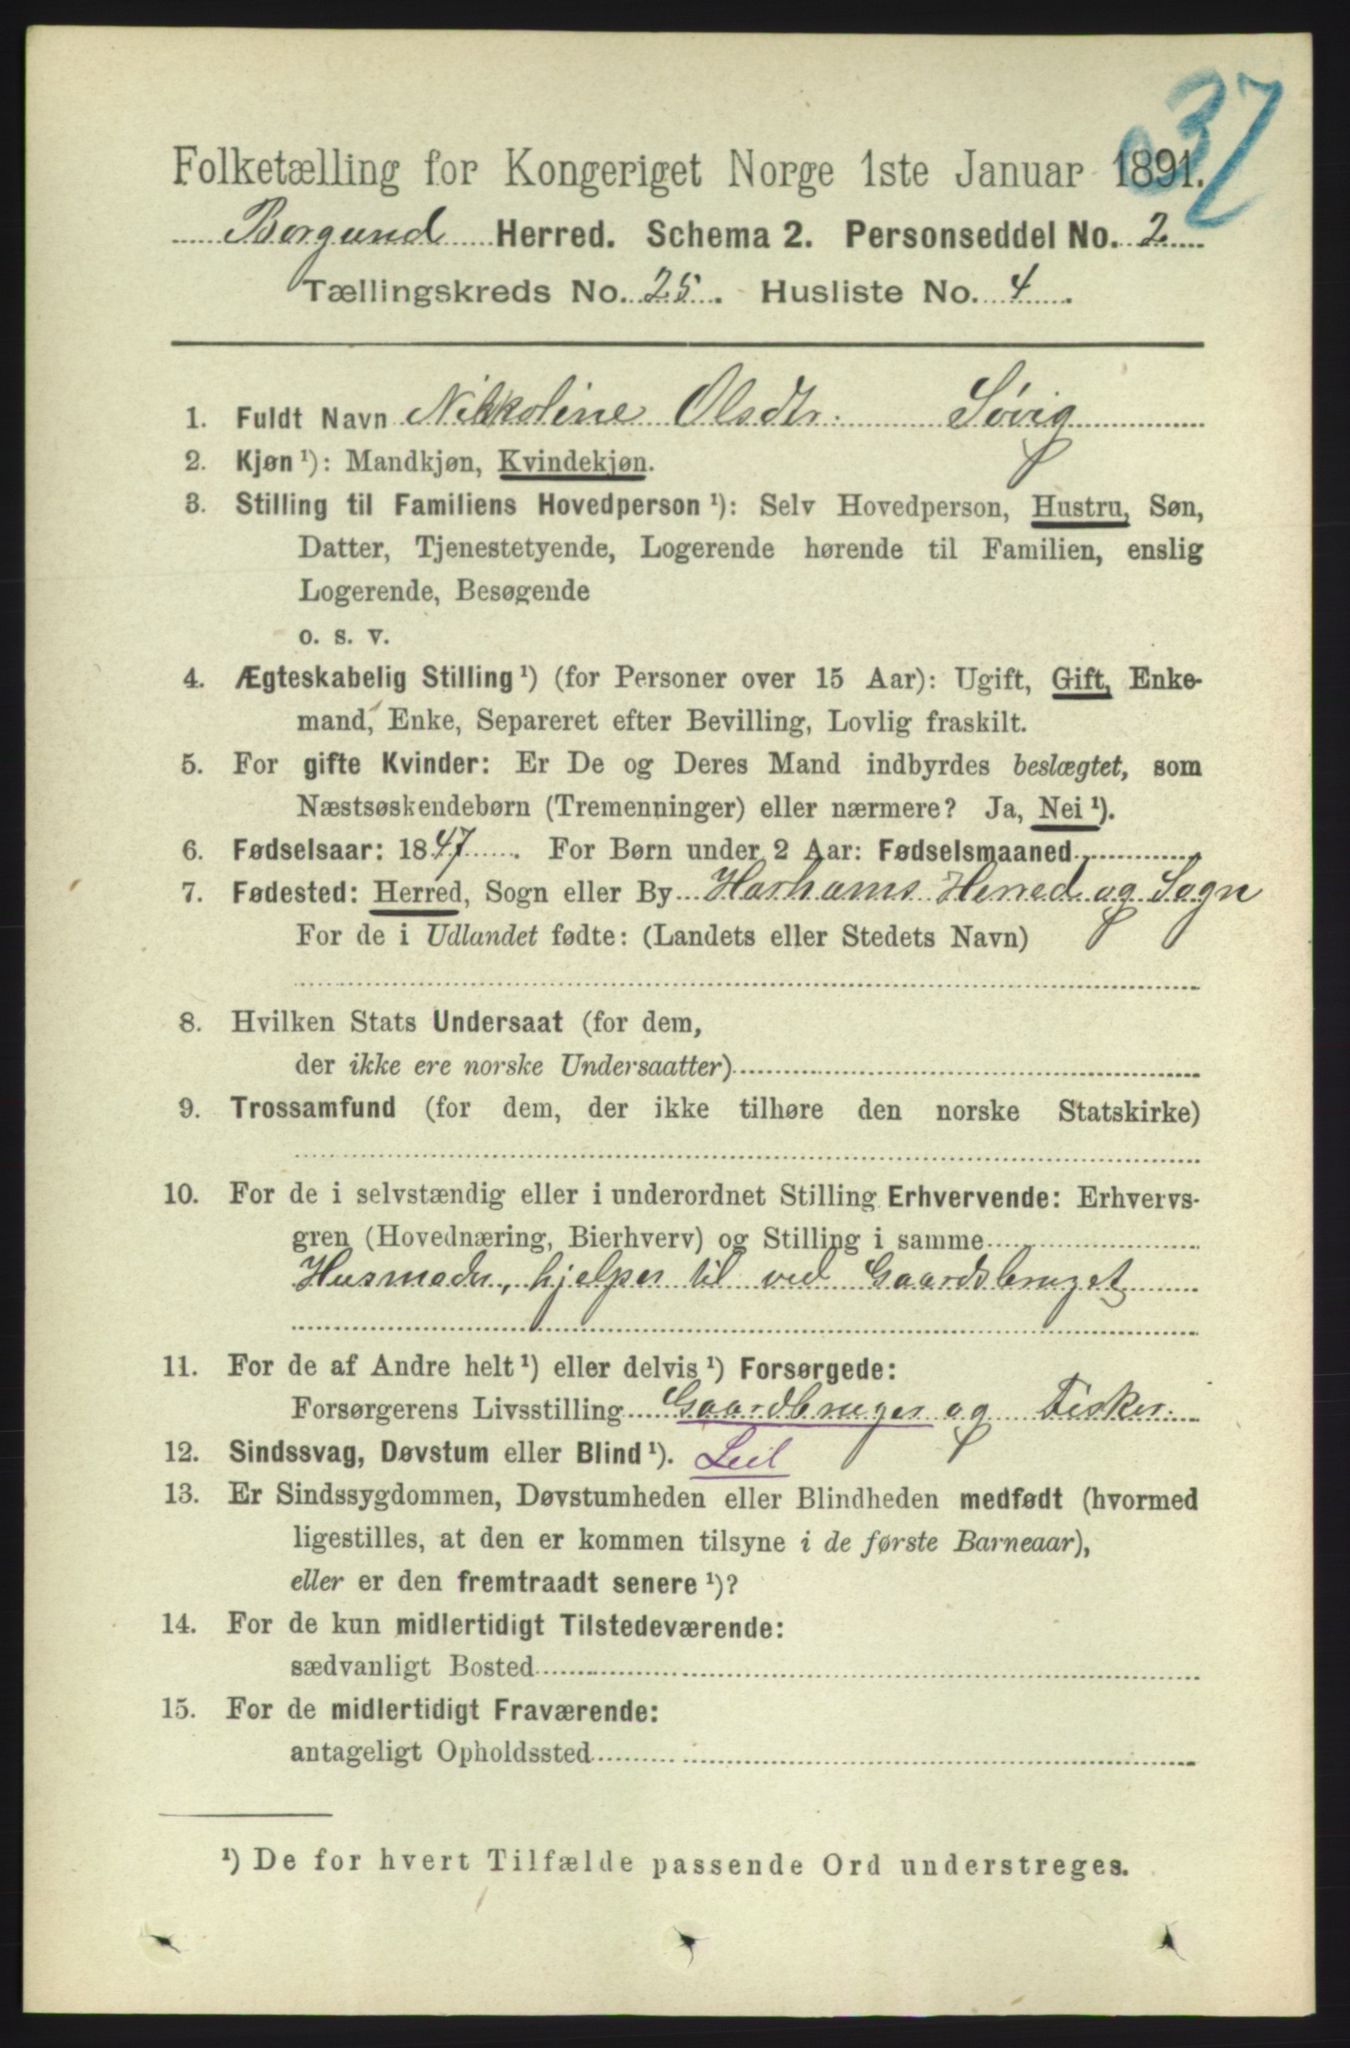 37
Folketælling for Kongeriget Norge 1ste Januar 1891.
Borgund Herred. Schema 2. Personseddel No. 2
Tællingskreds No. 25. Husliste No. 4.
1. Fuldt Navn Nikkoline Olsdtr. Søvig
2. Kjøn ¹): Mandkjøn, Kvindekjøn.
3. Stilling til Familiens Hovedperson ¹): Selv Hovedperson, Hustru, Søn,
Datter, Tjenestetyende, Logerende hørende til Familien, enslig
Logerende, Besøgende
o. s. v.
4. Ægteskabelig Stilling ¹) (for Personer over 15 Aar): Ugift, Gift, Enke-
mand, Enke, Separeret efter Bevilling, Lovlig fraskilt.
5. For gifte Kvinder: Er De og Deres Mand indbyrdes beslægtet, som
Næstsøskendebørn (Tremenninger) eller nærmere? Ja, Nei ¹).
6. Fødselsaar: 1847. For Børn under 2 Aar: Fødselsmaaned
7. Fødested: Herred, Sogn eller By Harhams Herred og Sogn
For de i Udlandet fødte: (Landets eller Stedets Navn)
8. Hvilken Stats Undersaat (for dem,
der ikke ere norske Undersaatter)
9. Trossamfund (for dem, der ikke tilhøre den norske Statskirke)
10. For de i selvstændig eller i underordnet Stilling Erhvervende: Erhvervs-
gren (Hovednæring, Bierhverv) og Stilling i samme
Husmoder, hjelper til ved Gaardsbruget
11. For de af Andre helt ¹) eller delvis ¹) Forsørgede:
Forsørgerens Livsstilling Gaardbruger og Fisker.
12. Sindssvag, Døvstum eller Blind ¹). Leil
13. Er Sindssygdommen, Døvstumheden eller Blindheden medfødt (hvormed
ligestilles, at den er kommen tilsyne i de første Barneaar),
eller er den fremtraadt senere ¹)?
14. For de kun midlertidigt Tilstedeværende:
sædvanligt Bosted
15. For de midlertidigt Fraværende:
antageligt Opholdssted
¹) De for hvert Tilfælde passende Ord understreges.